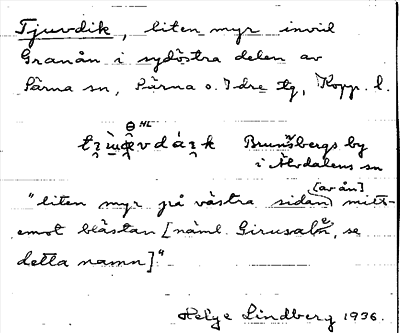 Tjuvdik, liten myr invid
Granån i sydöstra delen av
Särna sn, Särna o. Idre tg, Kopp. l.
Brunnsbergs by
i Älvdalens sn
"liten myr på västra sidan (av ån) mitt-
emot blästan [näml. Girusaln, se
detta namn]"
Helge Lindberg 1936.